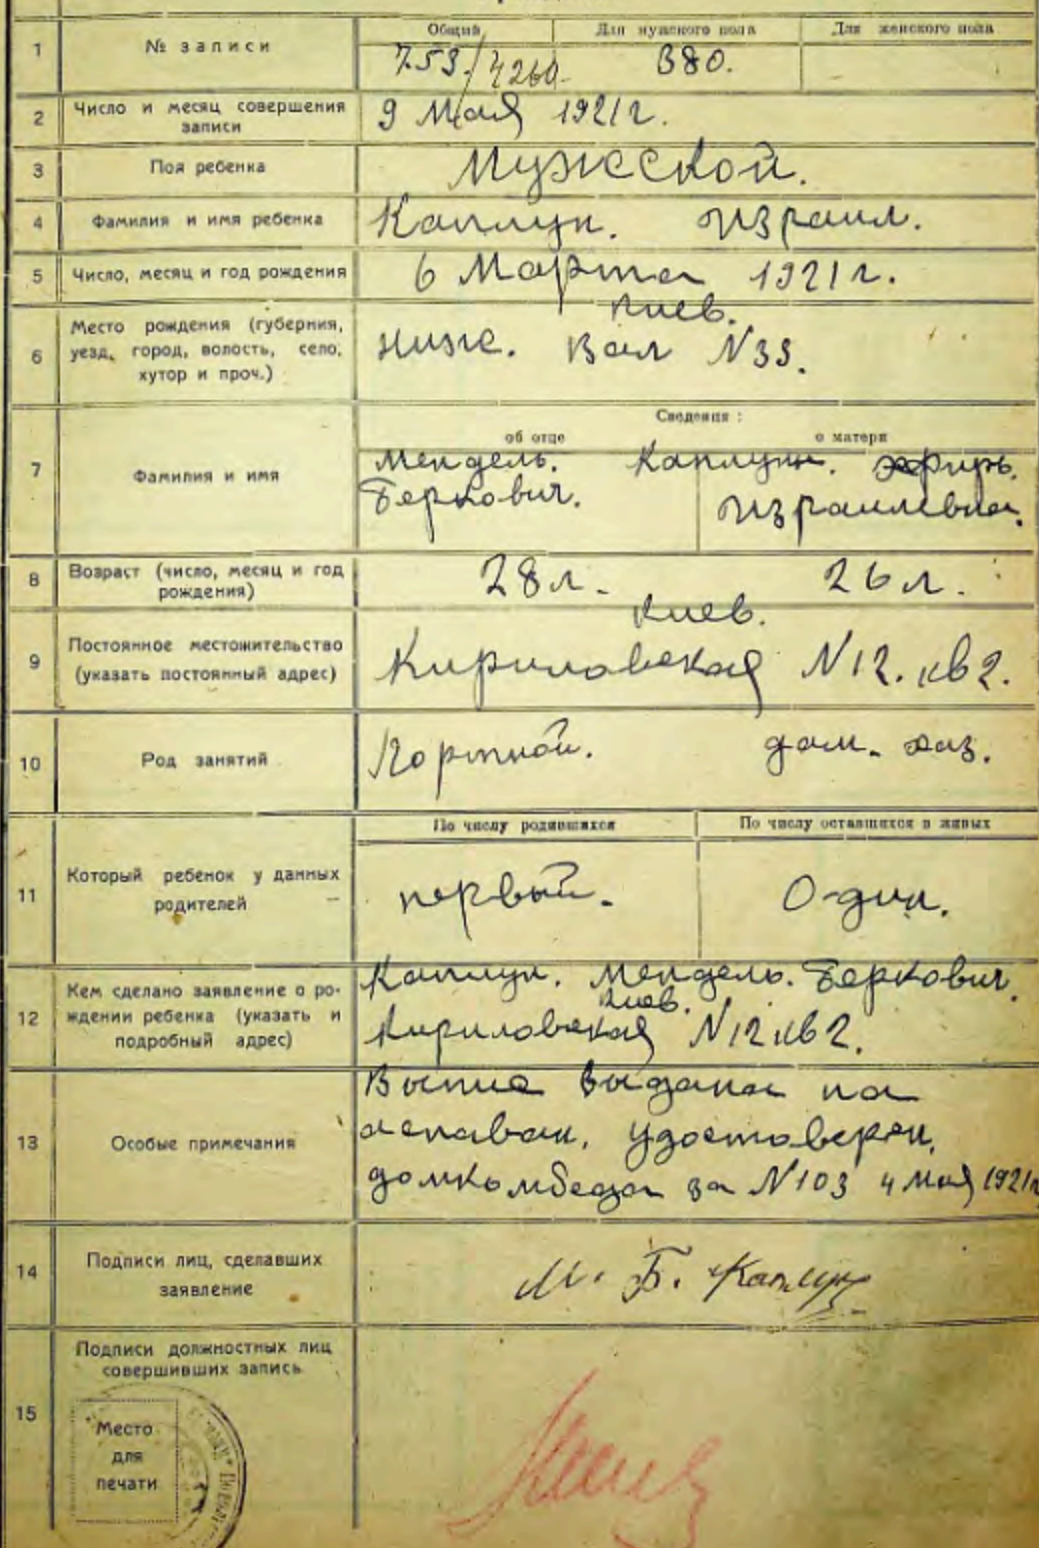 1
№ записи
Общий Для мужского пола Для женского пола
753/4260. 380.
2
Число и месяц совершения
записи
9 Мая 1921 г.
3
Пол ребенка
Мужсской.
4
Фамилия и имя ребенка
Каплун. Израил.
5
Число, месяц и год рождения
6 Марта 1921 г.
6
Место рождения (губерния,
уезд, город, волость, село,
хутор и проч.)
Киев.
Ниже. Вал N33.
7
Фамилия и имя
Сведения :
об отце о матери
Мендель. Каплун.
Беркович. Израилевна.
8
Возраст (число, месяц и год
рождения)
28 л. 26 л.
9
Постоянное местожительство
(указать постоянный адрес)
Киев.
Кириловская N12. кв 2.
10
Род занятий
Портной. дом. хаз.
11
Который ребенок у данных
родителей
По числу родившихся По числу оставшихся в живых
первый. Один.
12
Кем сделано заявление о ро-
ждении ребенка (указать и
подробный адрес)
Каплун. Мендель. Беркович.
Киев.
Кириловская N12 кв 2.
13
Особые примечания
Выпис выдана на
основан. удостоверен.
домкомбеда за N103 4 Мая 1921 г
14
Подписи лиц, сделавших
заявление
М. Б. Каплун
15
Подписи должностных лиц
совершивших запись
Место
для
печати